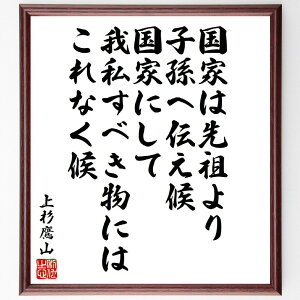 国家は先祖より
子孫へ伝え候
国家にして
我私すべき物には
これなく候
上杉鷹山